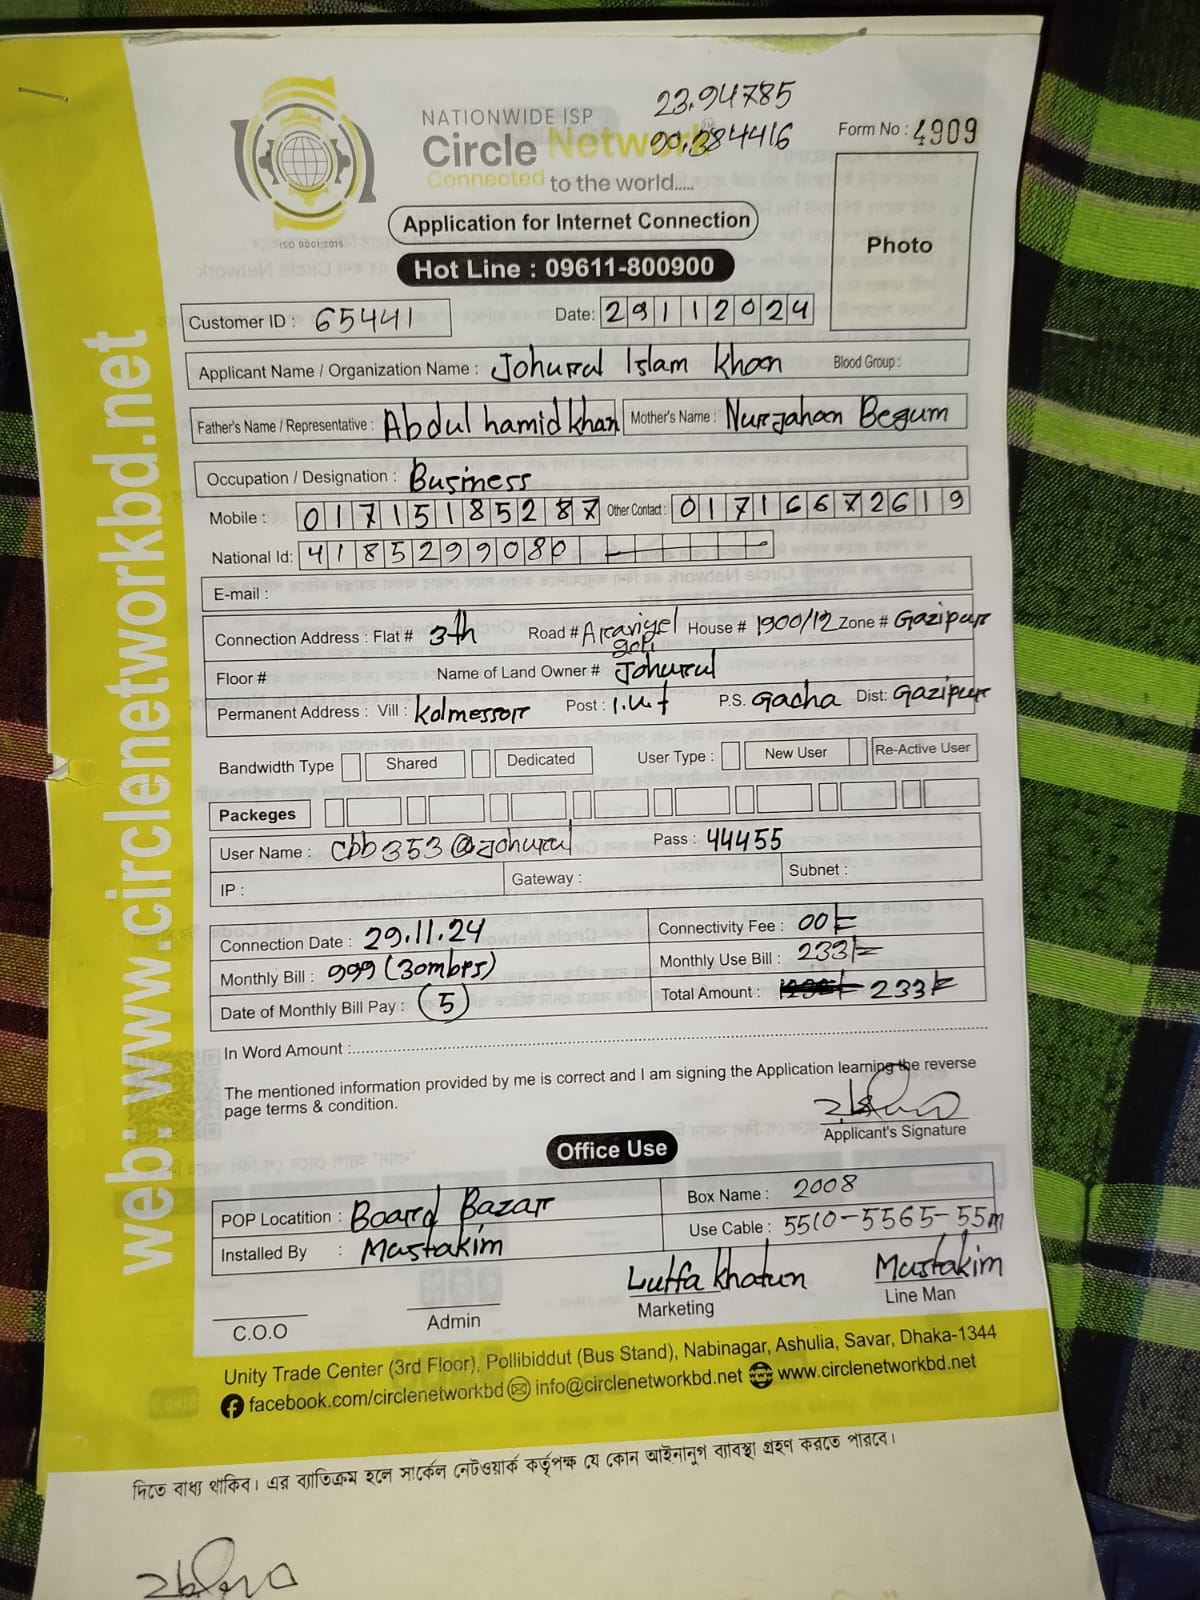 23.94785
NATIONWIDE ISP
Circle Network
00.384416
Form No : 4909
Connected to the world.....
ISO 9001:2015
Application for Internet Connection
Photo
Hot Line : 09611-800900
Customer ID : 65441 Date: 29112024
Applicant Name / Organization Name : Johurul Islam Khan Blood Group :
Father's Name / Representative : Abdul hamid khan Mother's Name : Nurjahan Begum
Occupation / Designation : Business
Mobile : 01715185287 Other Contact : 01716672619
National Id: 4185299080
E-mail :
Connection Address : Flat # 3th Road # goli House # 1900/12 Zone # Gazipur
Floor # Name of Land Owner # Johurul
Permanent Address : Vill : Kolmessorr Post : P.S. Gacha Dist: Gazipur
Bandwidth Type Shared Dedicated User Type : New User Re-Active User
Packeges
User Name : cbb353@johurul Pass : 44455
IP : Gateway : Subnet :
Connection Date : 29.11.24 Connectivity Fee : 00/=
Monthly Bill : 999 (30mbps) Monthly Use Bill : 233/=
Date of Monthly Bill Pay : (5) Total Amount : 233/=
In Word Amount :
The mentioned information provided by me is correct and I am signing the Application learning the reverse
page terms & condition.
Applicant's Signature
Office Use
POP Locatition : Board Bazar Box Name : 2008
Installed By : Mustakim Use Cable : 5510-5565-55m
Lutfa Khatun Mustakim
C.O.O Admin Marketing Line Man
Unity Trade Center (3rd Floor), Pollibiddut (Bus Stand), Nabinagar, Ashulia, Savar, Dhaka-1344
facebook.com/circlenetworkbd info@circlenetworkbd.net www.circlenetworkbd.net
web: www.circlenetworkbd.net
দিতে বাধ্য থাকিব। এর ব্যাতিক্রম হলে সার্কেল নেটওয়ার্ক কর্তৃপক্ষ যে কোন আইনানুগ ব্যাবস্থা গ্রহণ করতে পারবে।